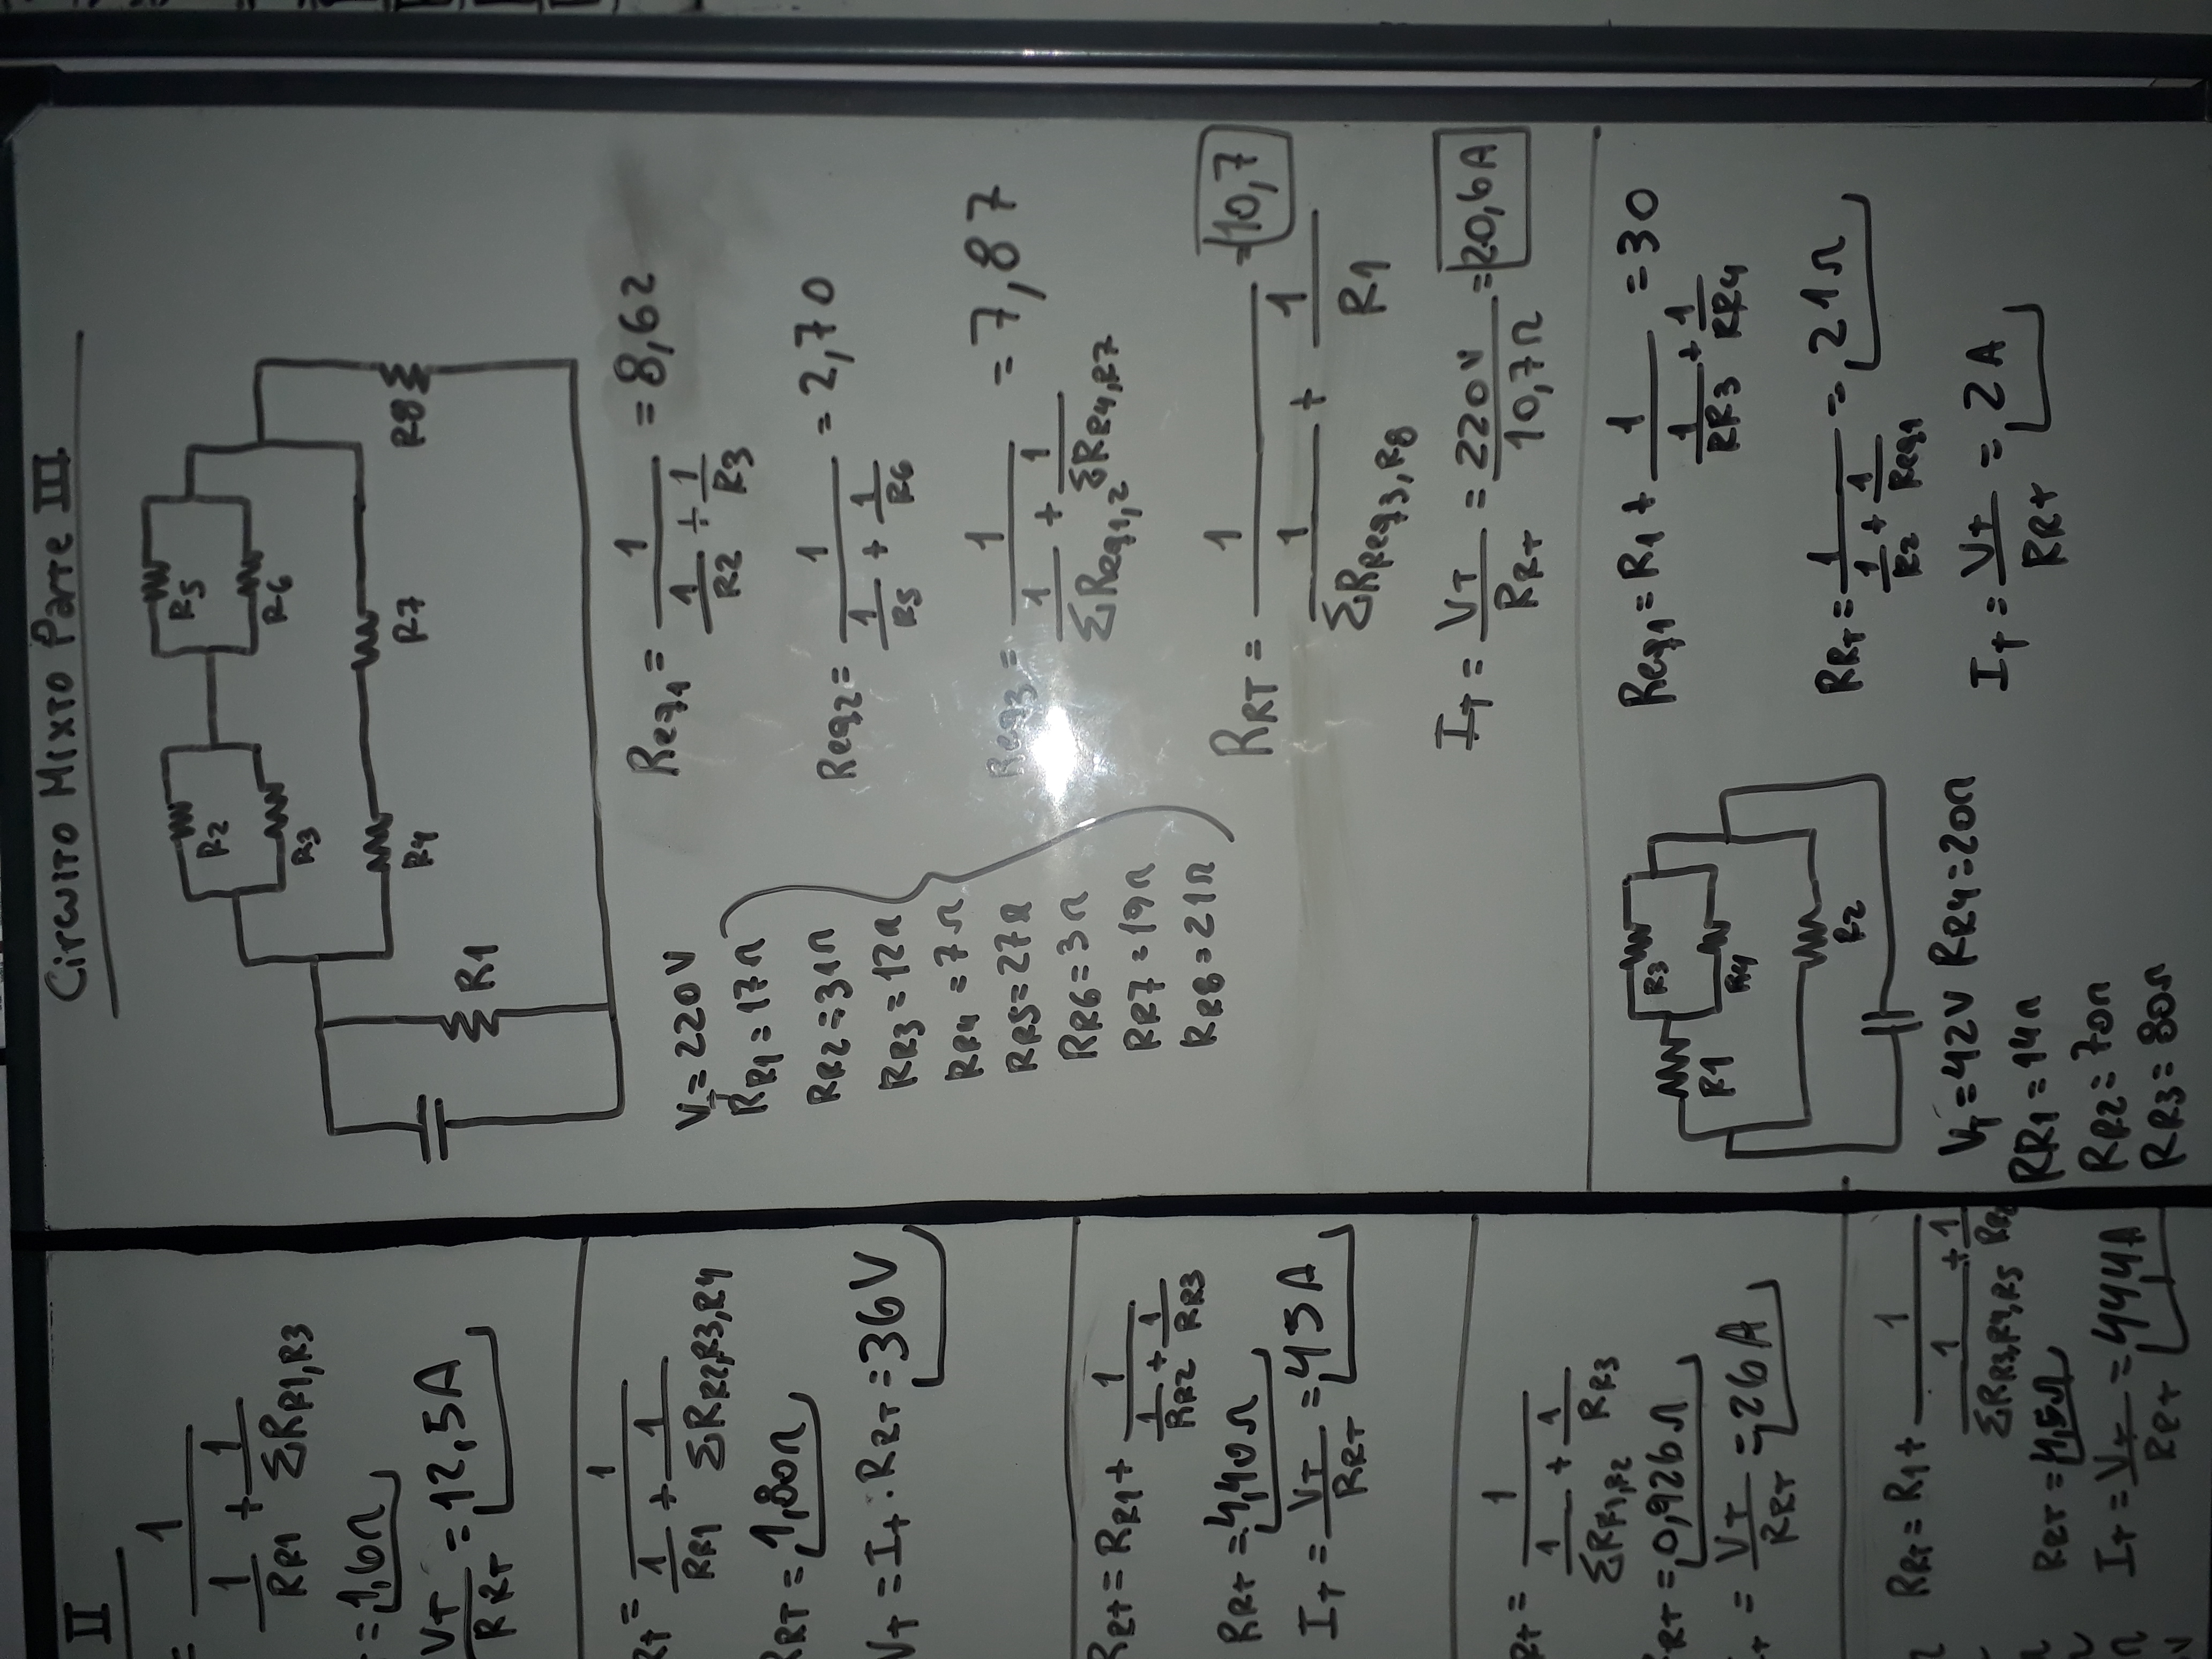 II
= 1 / (1/RR1 + 1/ΣRR1,R3)
= 1,6Ω
VT/RRT = 12,5A
Rt = 1 / (1/RR1 + 1/ΣRR2,R3,R4)
RRT = 1,80Ω
VT = IT . RRT = 36V
RRt = RR1 + 1 / (1/RR2 + 1/RR3)
RRT = 4,40Ω
IT = VT/RRT = 45A
Rt = 1 / (1/ΣRR1,R2 + 1/RR3)
RT = 0,926Ω
= VT/RRT = 26A
RRT = R1 + 1 / (1/ΣRR3,R4,R5 + 1/RR
RRT = 4,5Ω
IT = VT/RRT = 44,4A
Circuito Mixto Parte III
R2
R5
R3
R6
R4
R7
R8
R1
VT = 220V
RR1 = 17Ω
RR2 = 31Ω
RR3 = 12Ω
RR4 = 7Ω
RR5 = 27Ω
RR6 = 3Ω
RR7 = 19Ω
RR8 = 21Ω
Req1 = 1 / (1/R2 + 1/R3) = 8,62
Req2 = 1 / (1/R5 + 1/R6) = 2,70
Req3 = 1 / (1/ΣReq1,2 + 1/ΣRR4,R7) = 7,87
RRT = 1 / (1/ΣRReq3,R8 + 1/R1) = 10,7
IT = VT/RRT = 220V/10,7Ω = 20,6A
R3
R1
R4
R2
VT = 42V RR4 = 20Ω
RR1 = 14Ω
RR2 = 70Ω
RR3 = 80Ω
Req1 = R1 + 1 / (1/RR3 + 1/RR4) = 30
RRT = 1 / (1/R2 + 1/Req1) = 21Ω
IT = VT/RRT = 2A